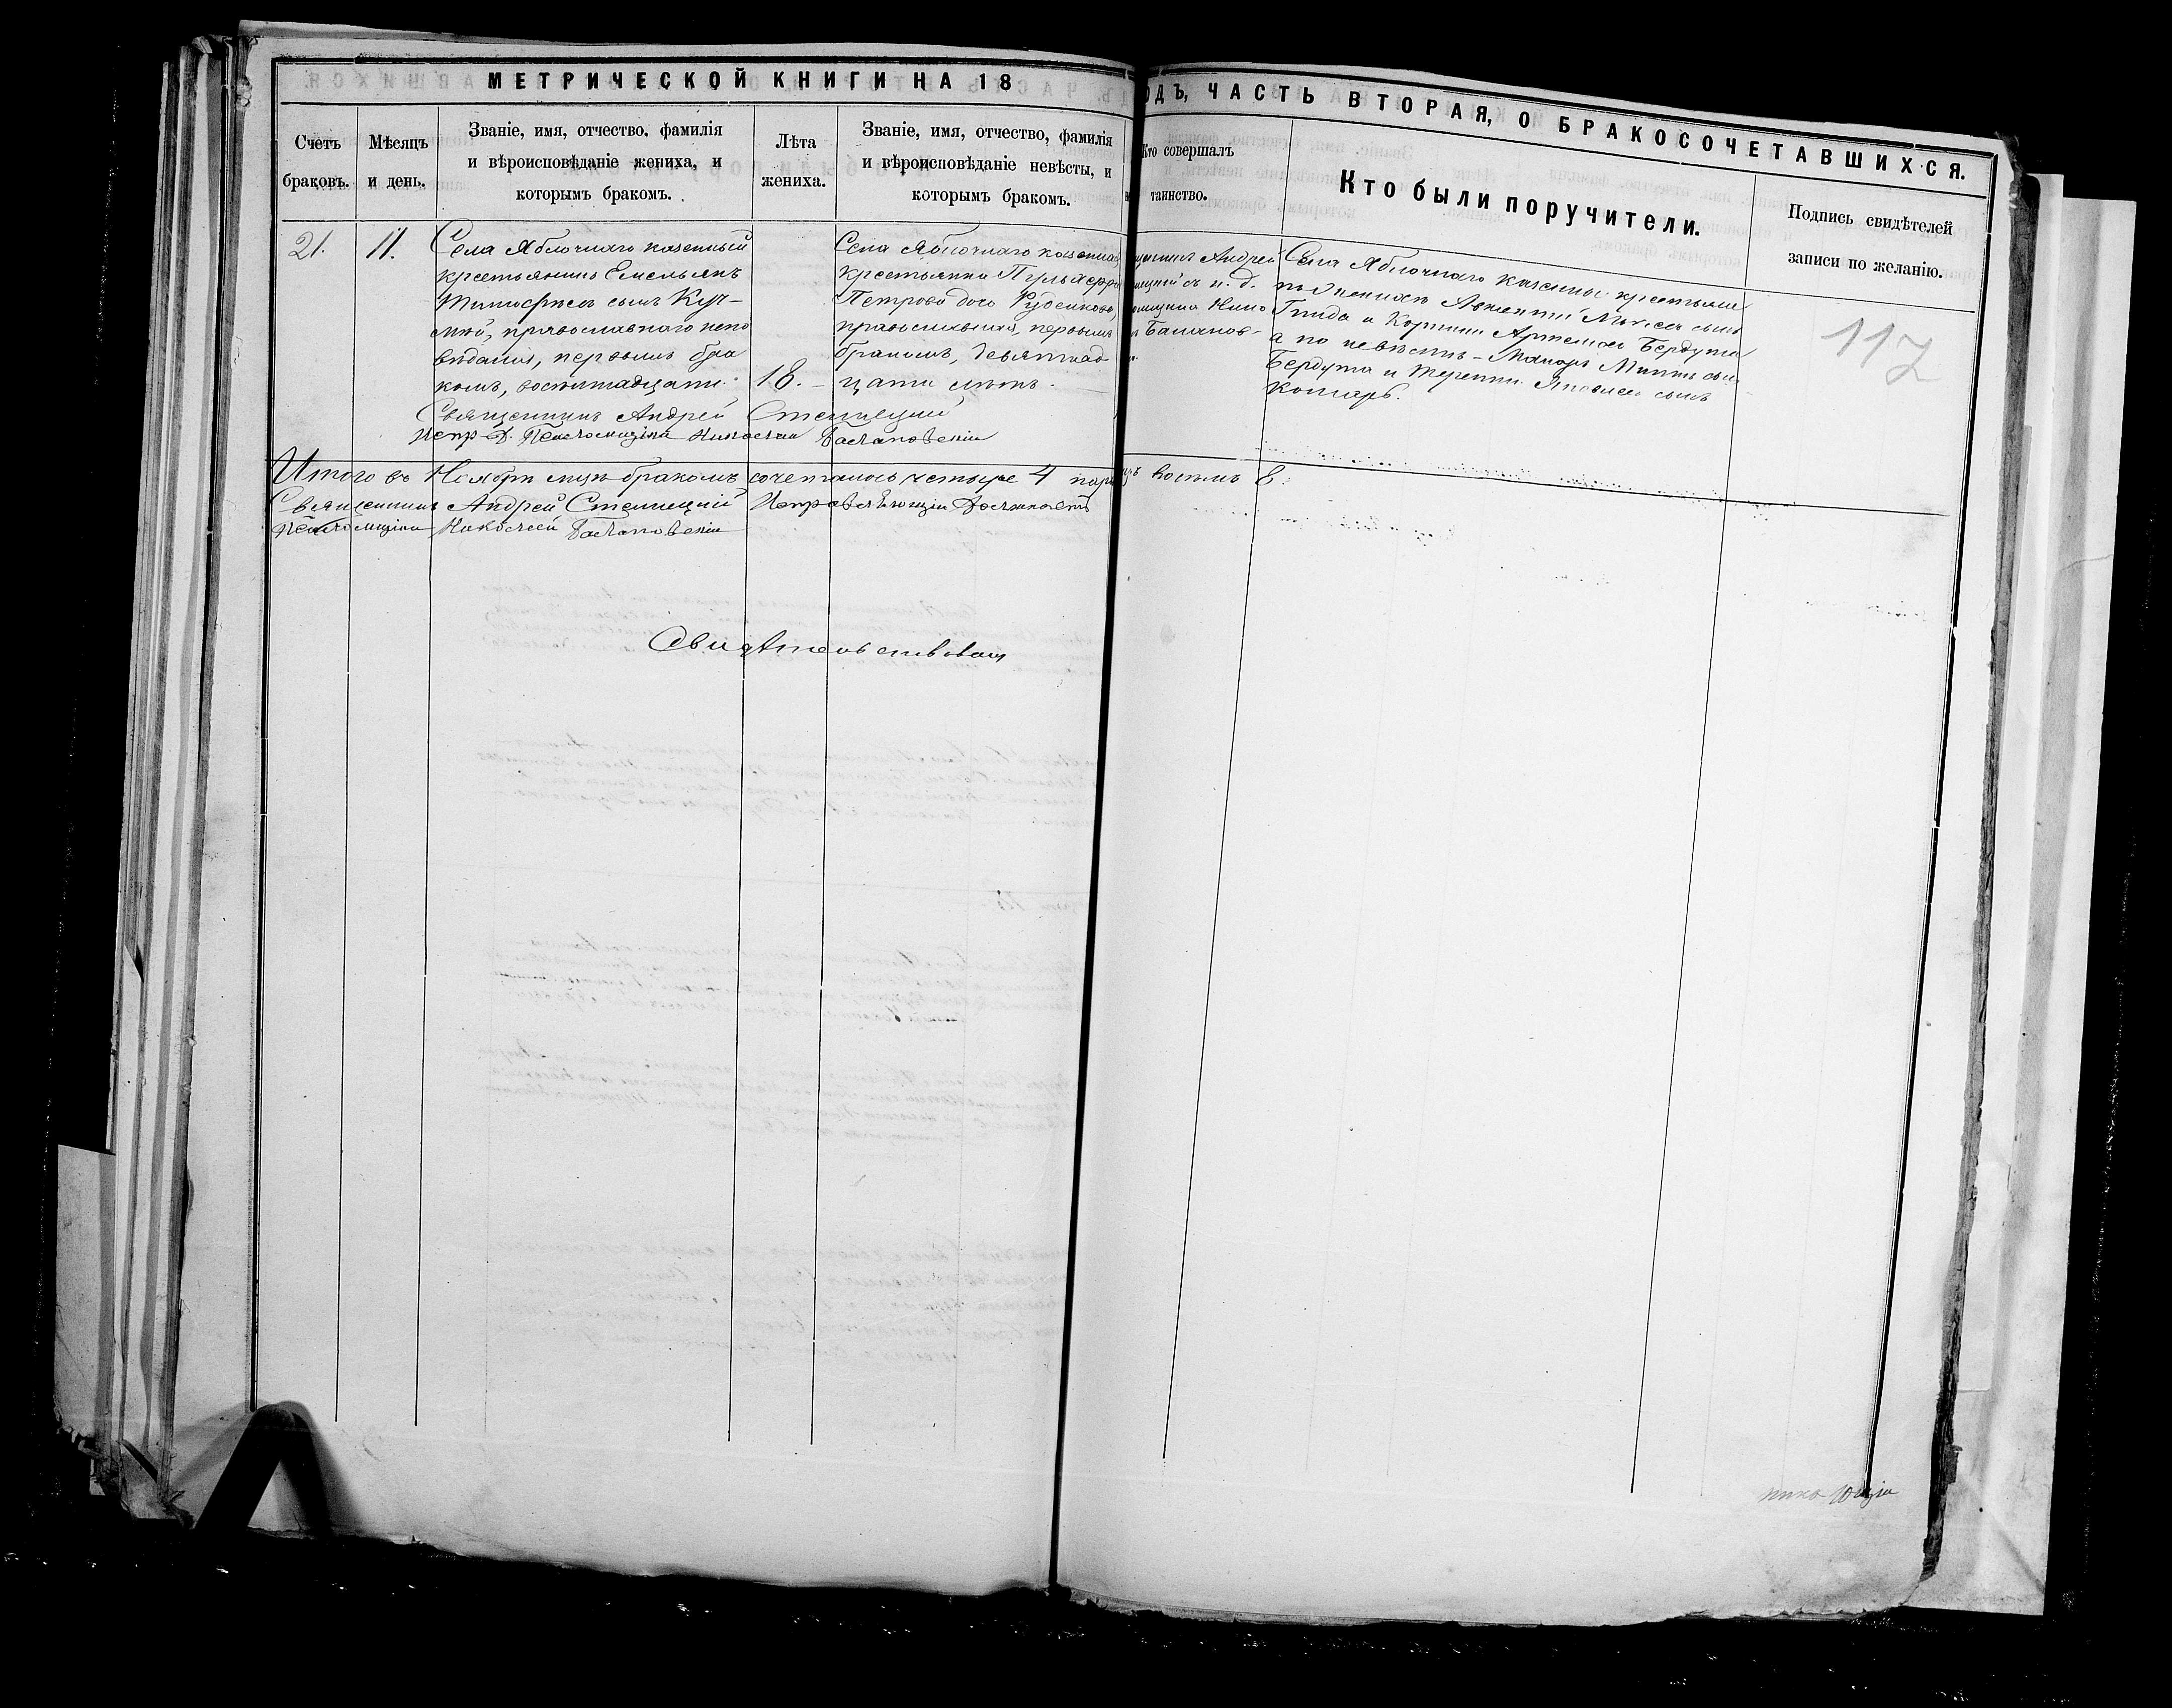 МЕТРИЧЕСКОЙ КНИГИ НА 18
ОДЪ, ЧАСТЬ ВТОРАЯ, О БРАКОСОЧЕТАВШИХСЯ.
Счетъ
браковъ.
Мѣсяцъ
и день.
Званіе, имя, отчество, фамилія
и вѣроисповѣданіе жениха, и
которымъ бракомъ.
Лѣта
жениха.
Званіе, имя, отчество, фамилія
и вѣроисповѣданіе невѣсты, и
которымъ бракомъ.
Кто совершалъ
таинство.
Кто были поручители.
Подпись свидѣтелей
записи по желанію.
21.
11.
Села Яблочнаго казенный
крестьянинъ Емельянъ
сынъ
православнаго испо
вѣданія, первымъ бра
комъ, восемнадцати
18.
Села Яблочнаго казенная
крестьянка Пульхерія
Петрова дочь Руденкова,
православная, первымъ
бракомъ, девятнад
цати лѣтъ.
Андрей
и. д.
Нико
Баланов-
Села Яблочнаго казенные крестьяне
по женихѣ сынъ
Гнида и Бердута
а по невѣстѣ - сынъ
Бердута и Терентій сынъ
Комаръ.
117
Священникъ Андрей Стеллецкій
Испр. Д. Псаломщика Николай Балановскій
Итого въ Ноябрѣ м-цѣ бракомъ сочеталось четыре 4 пары
восемь 8.
Священникъ Андрей Стеллецкій Исправляющій Должность
Псаломщика Николай Балановскій
Свидѣтельствовалъ